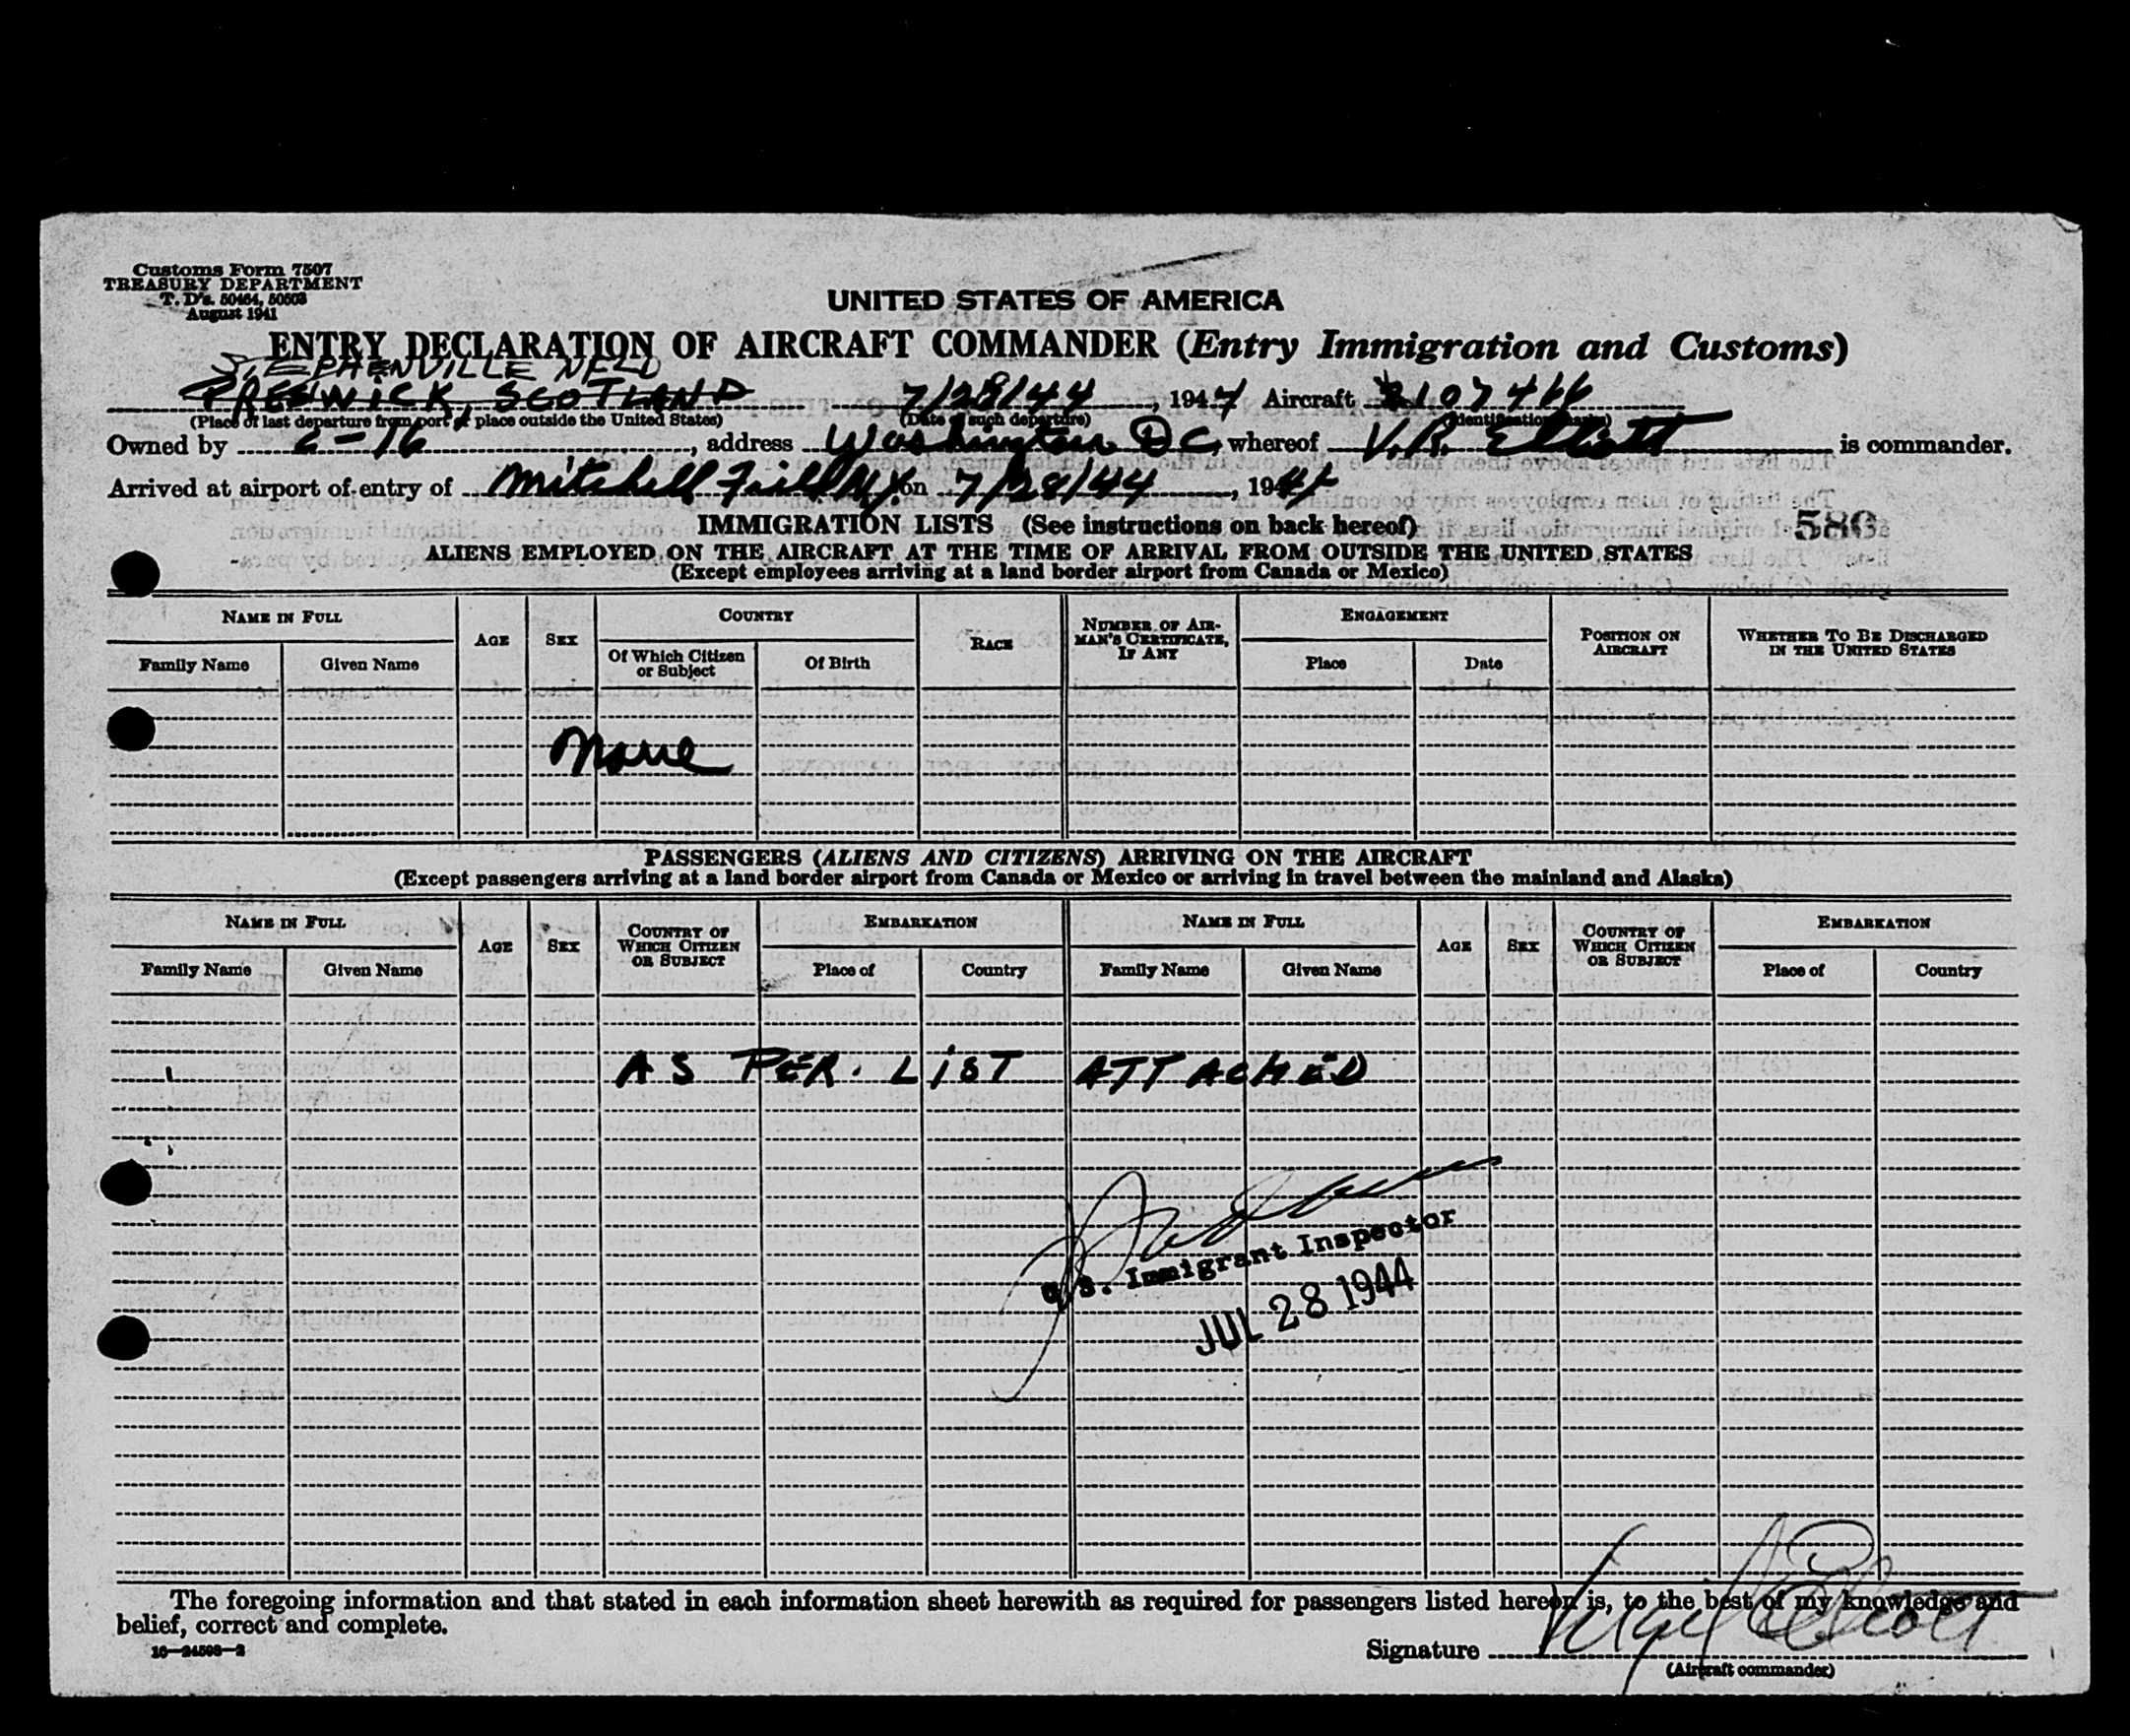 Customs Form 7507
TREASURY DEPARTMENT
T. D's. 50464, 50503
August 1941
UNITED STATES OF AMERICA
ENTRY DECLARATION OF AIRCRAFT COMMANDER (Entry Immigration and Customs)
STEPHENVILLE NFLD
PRESWICK, SCOTLAND 7/28/44, 1944 Aircraft 2107466
(Place of last departure from port or place outside the United States) (Date of such departure) (Identification marks)
Owned by C-16, address Washington DC, whereof V.R. Elliott is commander.
Arrived at airport of entry of Mitchell Field NY. on 7/28/44, 1944
IMMIGRATION LISTS (See instructions on back hereof)
580
ALIENS EMPLOYED ON THE AIRCRAFT AT THE TIME OF ARRIVAL FROM OUTSIDE THE UNITED STATES
(Except employees arriving at a land border airport from Canada or Mexico)
NAME IN FULL AGE SEX COUNTRY RACE NUMBER OF AIRMAN'S CERTIFICATE, IF ANY ENGAGEMENT POSITION ON AIRCRAFT WHETHER TO BE DISCHARGED IN THE UNITED STATES
Family Name Given Name Of Which Citizen or Subject Of Birth Place Date
None
PASSENGERS (ALIENS AND CITIZENS) ARRIVING ON THE AIRCRAFT
(Except passengers arriving at a land border airport from Canada or Mexico or arriving in travel between the mainland and Alaska)
NAME IN FULL AGE SEX COUNTRY OF WHICH CITIZEN OR SUBJECT EMBARKATION NAME IN FULL AGE SEX COUNTRY OF WHICH CITIZEN OR SUBJECT EMBARKATION
Family Name Given Name Place of Country Family Name Given Name Place of Country
AS PER. LIST ATTACHED
U.S. Immigrant Inspector
JUL 28 1944
The foregoing information and that stated in each information sheet herewith as required for passengers listed hereon is, to the best of my knowledge and
belief, correct and complete.
16—24503-2
Signature Virgil R Elliott
(Aircraft commander)